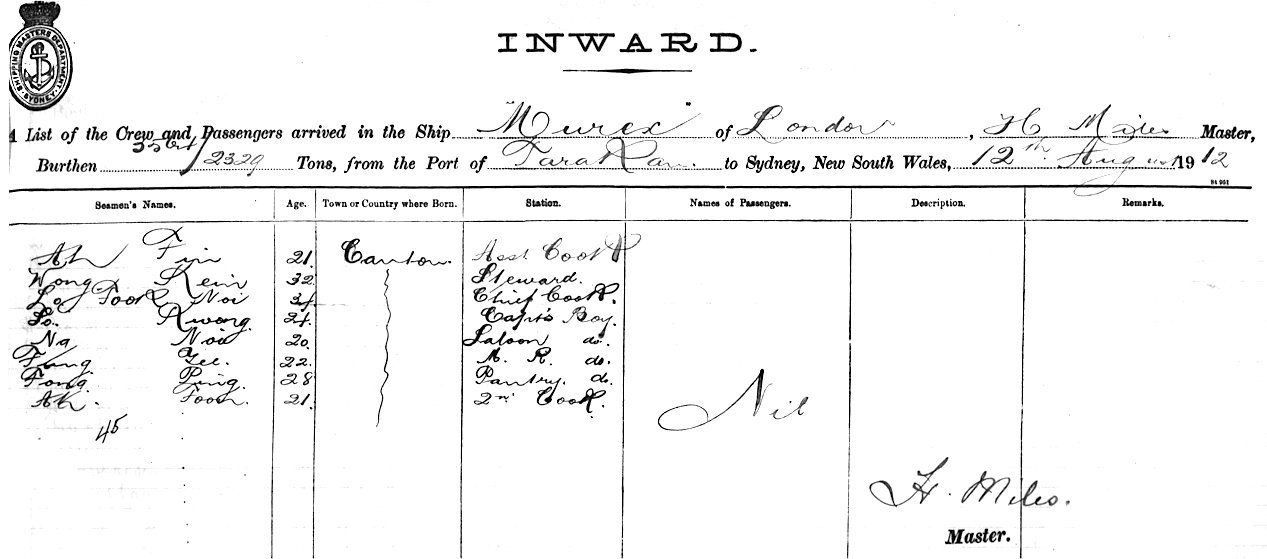 SHIPPING MASTERS DEPARTMENT. SYDNEY.
INWARD.
A List of the Crew and Passengers arrived in the Ship Murex of London, H Miles Master,
Burthen /2329 Tons, from the Port of Tarakan to Sydney, New South Wales, 12th August 1912
Seamen's Names. Age. Town or Country where Born. Station. Names of Passengers. Description. Remarks.
Ah Fin 21. Canton. Asst Cook
Wong Kein 32. Steward.
Lo Fook Noi 34. Chief Cook.
Lo. Kwong. 24. Capt's Boy.
Na Noi 20. Saloon do.
Fung Yee. 22. M. R. do.
Fong Ping. 28 Pantry. do.
Ah. Foon. 21. 2nd Cook.
Nil
45
H. Miles.
Master.